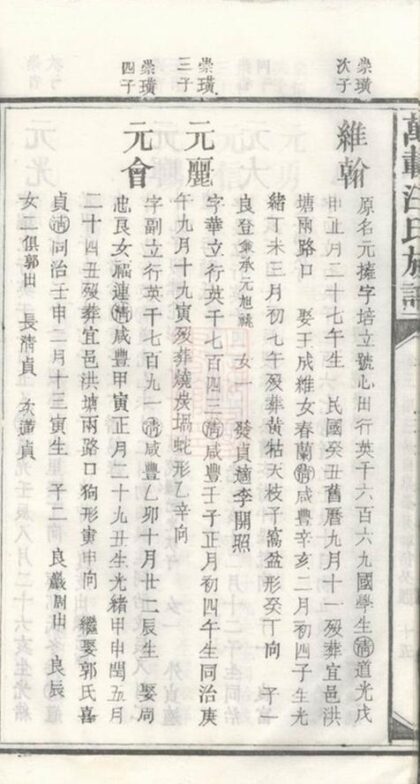 萬載汪氏族譜
崇璜
次子
維翰
原名元擁字培立號心田行英千六百六九國學生清道光戊
申正月二十七午生 民國癸丑舊曆九月十一歿葬宜邑洪
塘兩路口 娶王成維女春蘭清咸豐辛亥二月初四子生光
緒丁未三月初七午歿葬黃牯天枝子窩盆形癸丁向 子一
良登兼承元旭祧 女一 發貞適李開照
崇璜
三子
元麗
字華立行英千七百四二清咸豐壬子正月初四午生同治庚
午九月十九寅歿葬燒炭塥蛇形乙辛向
崇璜
四子
元會
字副立行英千七百九一清咸豐乙卯十月廿二辰生 娶周
忠良女福連清咸豐甲寅正月二十九丑生光緒甲申閏五月
二十四丑歿葬宜邑洪塘兩路口狗形寅申向 繼娶郭氏喜
貞清同治壬申二月十三寅生 子二 良嚴周出 良辰
女二俱郭出 長清貞 次蓮貞